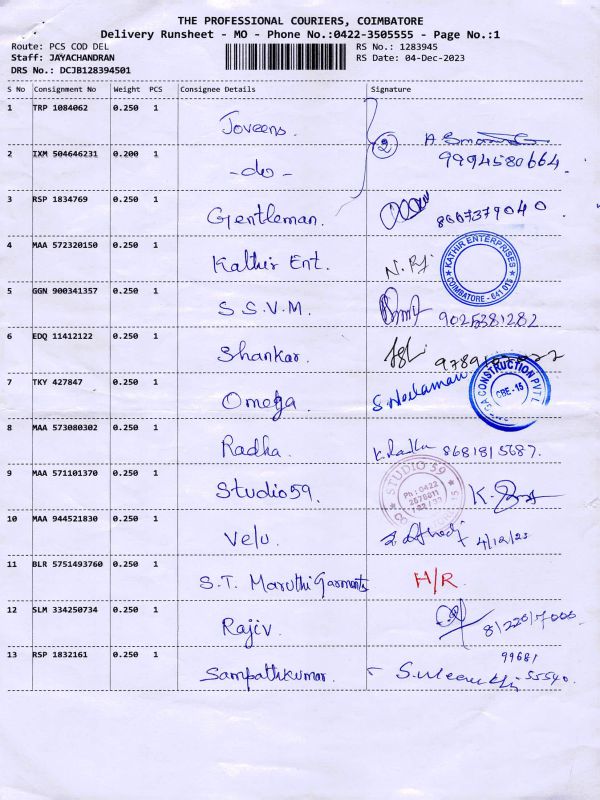 THE PROFESSIONAL COURIERS, COIMBATORE
Delivery Runsheet - MO - Phone No.:0422-3505555 - Page No.:1
Route: PCS COD DEL
RS No.: 1283945
Staff: JAYACHANDRAN
RS Date: 04-Dec-2023
DRS No.: DCJB128394501
S No Consignment No. Weight PCS Consignee Details Signature
1 TRP 1084062 0.250 1 Joveens. 2
9994580664.
2 IXM 504646231 0.200 1 -do-
3 RSP 1834769 0.250 1 Gentleman. 8667379040.
4 MAA 572320150 0.250 1 Kathir Ent. KATHIR ENTERPRISES COIMBATORE - 641 015
5 GGN 900341357 0.250 1 S.S.V.M. 9025381282
6 EDQ 11412122 0.250 1 Shankar.
7 TKY 427847 0.250 1 Omega. CONSTRUCTION PVT L CBE-15
8 MAA 573080302 0.250 1 Radha. K. Radha 8681815687.
9 MAA 571101370 0.250 1 Studio59. STUDIO 59 Ph : 0422
10 MAA 944521830 0.250 1 Velu. 4/12/23
11 BLR 5751493760 0.250 1 S.T. Maruthi Garments H/R.
12 SLM 334250734 0.250 1 Rajiv.
13 RSP 1832161 0.250 1 Sampathkumar. 99681
55540.